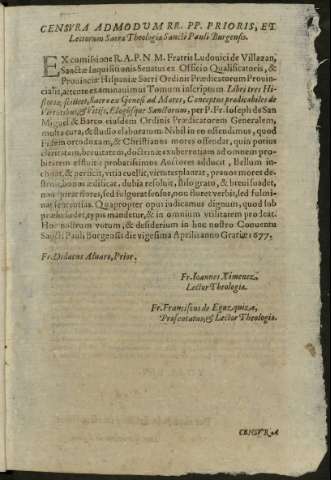 CENSVRA ADMODVM RR. PP. PRIORIS, ET
Lectorum Sacra Theologia Sancti Pauli Burgensis.
EX comissione R. A. P. N. M. Fratris Ludovici de Villazan,
Sanctæ Inquisitionis Senatus ex Officio Qualificatoris, &
Provinciæ Hispaniæ Sacri Ordinis Prædicatorum Provin-
cialis, attente examinavimus Tomum inscriptum Libro tres Hi-
storias, scilicet, Sacro ex Genesi ad Mores, Conceptos predicables de
Virtudes, y Vicios, Elogiisque Sanctorum, per P. Fr. Ioseph de San
Miguel & Barco eiusdem Ordinis Prædicatorem Generalem,
multa cura, & studio elaboratum. Nihil in eo offendimus, quod
Fidem ortodoxam, & Christianos mores offendat, quin potius
claritatem, brevitatem, doctrinæ exuberantiam ad omnium pro-
bitatem effusit: probatissimos Auctores adducit, Bellum in-
choat, & perficit, vitia evellit, virtutes plantat, pravos mores de-
struit, bonos ædificat, dubia resolvit, stilo grato, & breui suadet,
non præter flores, sed fulgorat fensos, non floret verbis, sed fulmi-
nat sententias. Quapropter opus iudicamus dignum, quod lub
prælo sudet, typis mandetur, & in omnium vtilitatem prodeat.
Hoc nostrum votum, & desiderium in hoc nostro Conuentu
Sancti Pauli Burgensis die vigesima Aprilis anno Gratiæ 1677.
Fr. Didacus Alvaro, Prior.
Fr. Ioannes Ximenez,
Lector Theologia.
Fr. Franciscus de Eguzquiza,
Præsentatus, & Lector Theologia.
CENSVRA